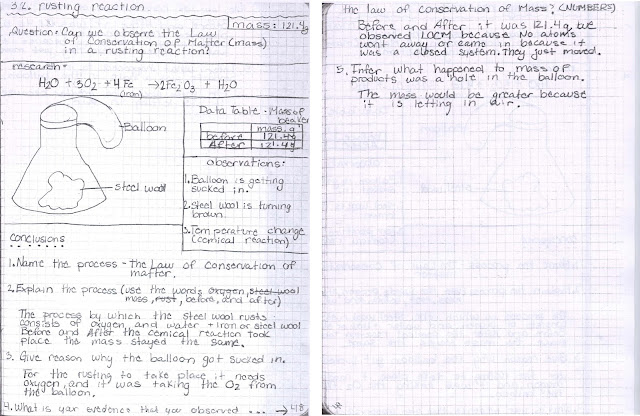 3.2. rusting reaction
mass: 121.4g
Question: Can we observe the Law
of Conservation of Matter (mass)
in a rusting reaction?
research:
H2O + 3O2 + 4Fe → 2Fe2O3 + H2O
(iron)
Balloon
steel wool
Data Table: Mass of
beaker
mass. g
before 121.4g
After 121.4g
observations:
1. Balloon is getting
sucked in.
2. steel wool is turning
brown.
3. Temperature change
(cemical reaction)
conclusions
1. Name the process - the Law of conservation of
matter.
2. Explain the process (use the words oxygen, steel wool
mass, rust, before, and after)
The process by which the steel wool rusts
consists of oxygen, and water + iron or steel wool
Before and After the cemical reaction took
place the mass stayed the same.
3. Give reason why the balloon got sucked in.
For the rusting to take place it needs
oxygen, and it was taking the O2 from
the balloon.
4. What is your evidence that you observed ... → 48
the law of conservation of Mass? (NUMBERS)
Before and After it was 121.4g, we
observed LOCM because no atoms
went away or came in because it
was a closed system. They just moved.
5. Infer what happened to mass of
products was a hole in the balloon.
The mass would be greater because
it is letting in air.